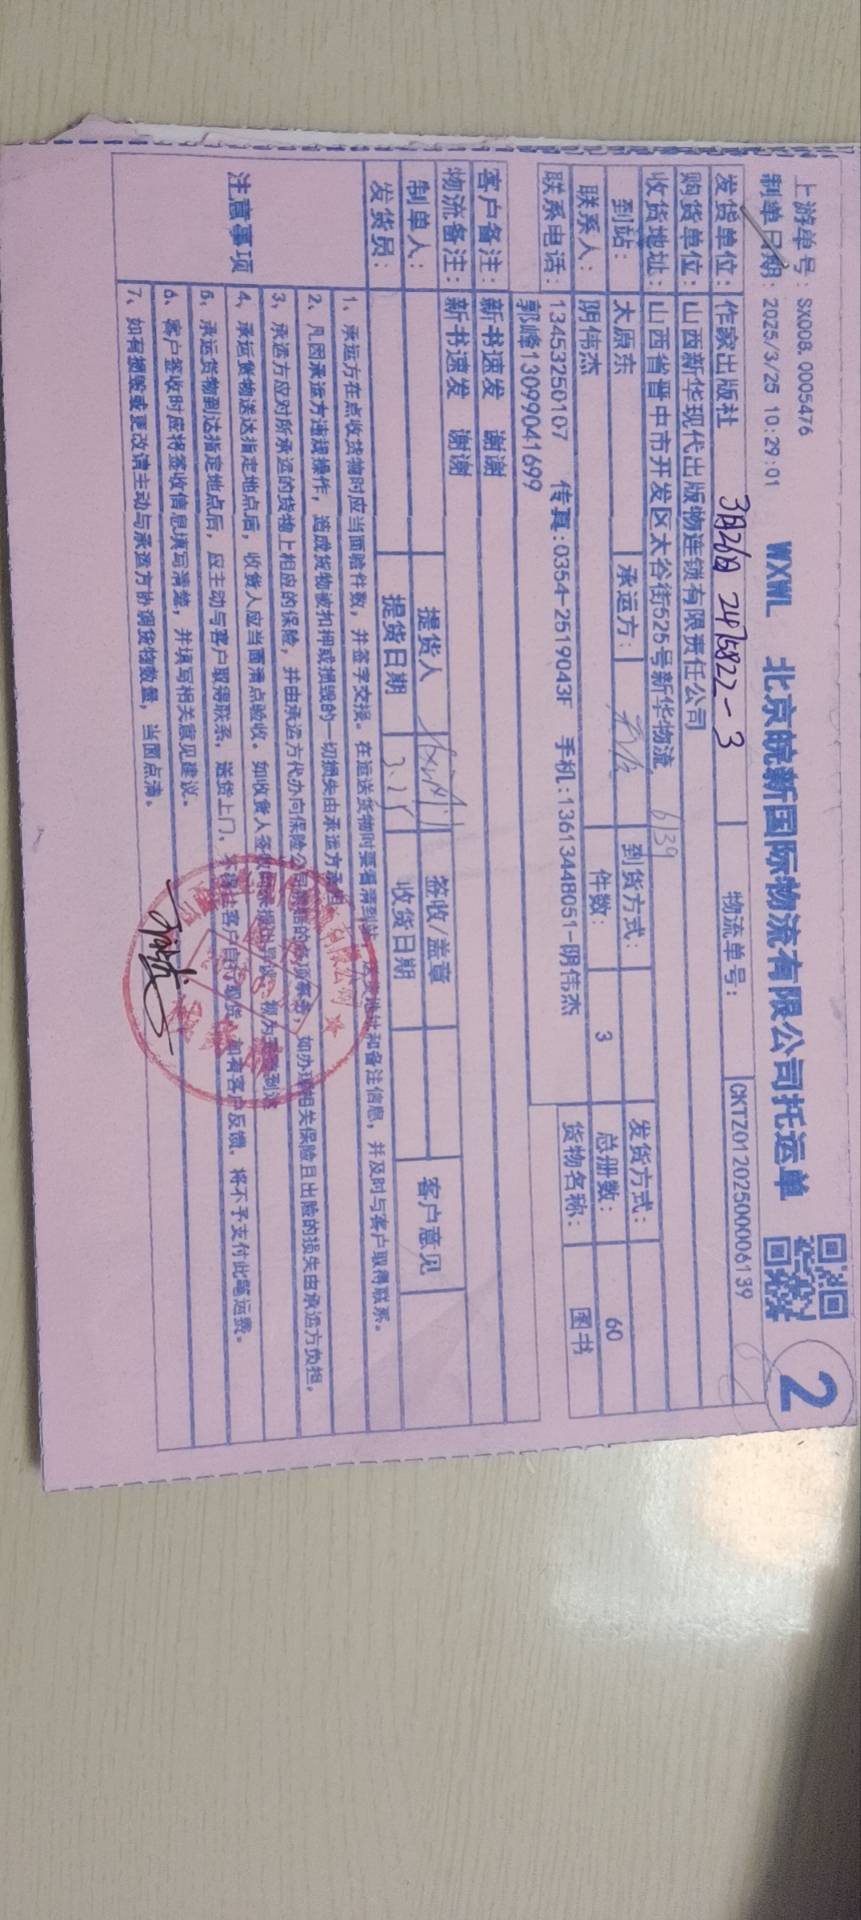 上游单号：SX008.0005476
制单日期：2025/3/25 10:29:01
WXWL 北京皖新国际物流有限公司托运单
2
发货单位：作家出版社
3月26日 2475822-3
物流单号：
CKTZ01202500006139
购货单位：山西新华现代出版物连锁有限责任公司
收货地址：山西省晋中市开发区太谷街525号新华物流
6139
到站：太原东
承运方：
到货方式：
发货方式：
联系人：阴伟杰
件数：3
总册数：60
联系电话：13453250107 传真:0354-2519043F 手机:13613448051-阴伟杰
郭峰13099041699
货物名称：图书
客户备注：新书速发 谢谢
物流备注：新书速发 谢谢
制单人：
提货人
签收/盖章
客户意见
发货员：
提货日期
收货日期
注意事项
1、承运方在点收货物时应当面验件数，并签字交接。在运送货物时要看清到站、送货地址和备注信息，并及时与客户取得联系。
2、凡因承运方违规操作，造成货物被扣押或损毁的一切损失由承运方承担。
3、承运方应对所承运的货物上相应的保险，并由承运方代办向保险公司 的各项事务，如办理相关保险且出险的损失由承运方负担。
4、承运货物送达指定地点后，收货人应当面清点验收。如收货人签收 视为 到达
5、承运货物到达指定地点后，应主动与客户取得联系，送货上门，不得让客户自行取货，如有客户反馈，将不予支付此笔运费。
6、客户签收时应将签收信息填写清楚，并填写相关意见建议。
7、如有损毁或更改请主动与承运方协调货物数量，当面点清。
有限公司